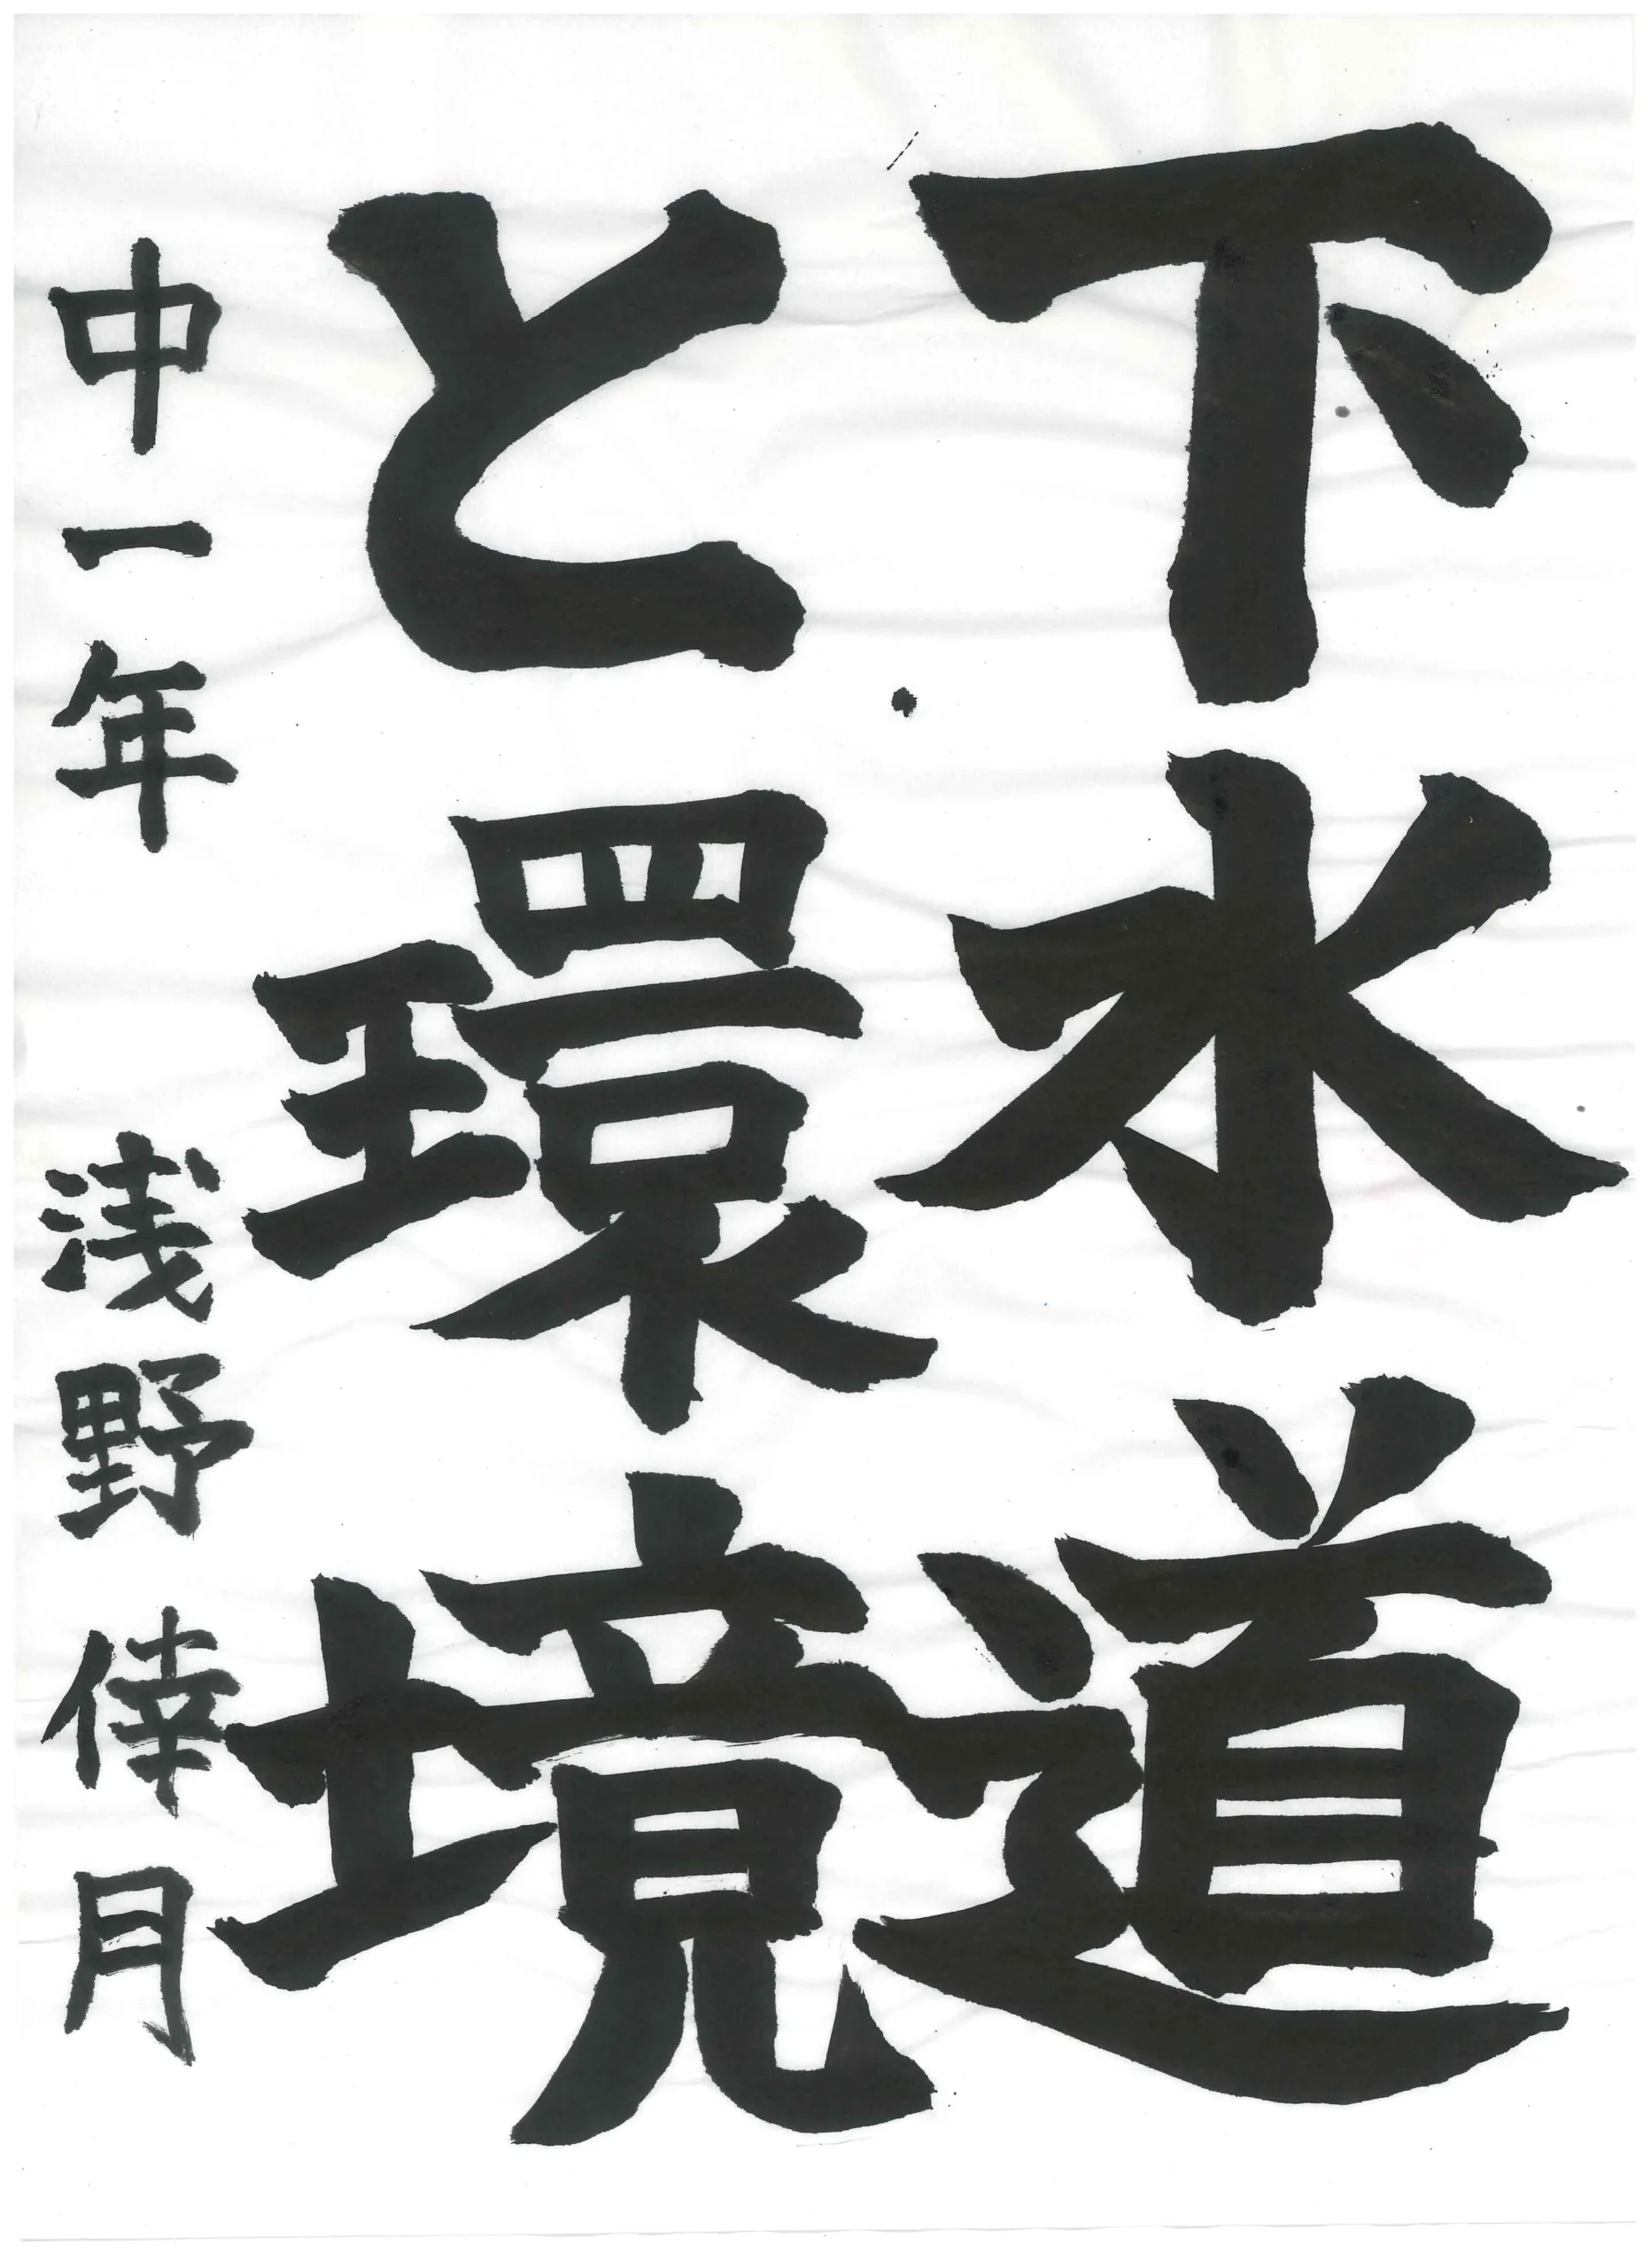 下水道
と環境
中一年 浅野倖月